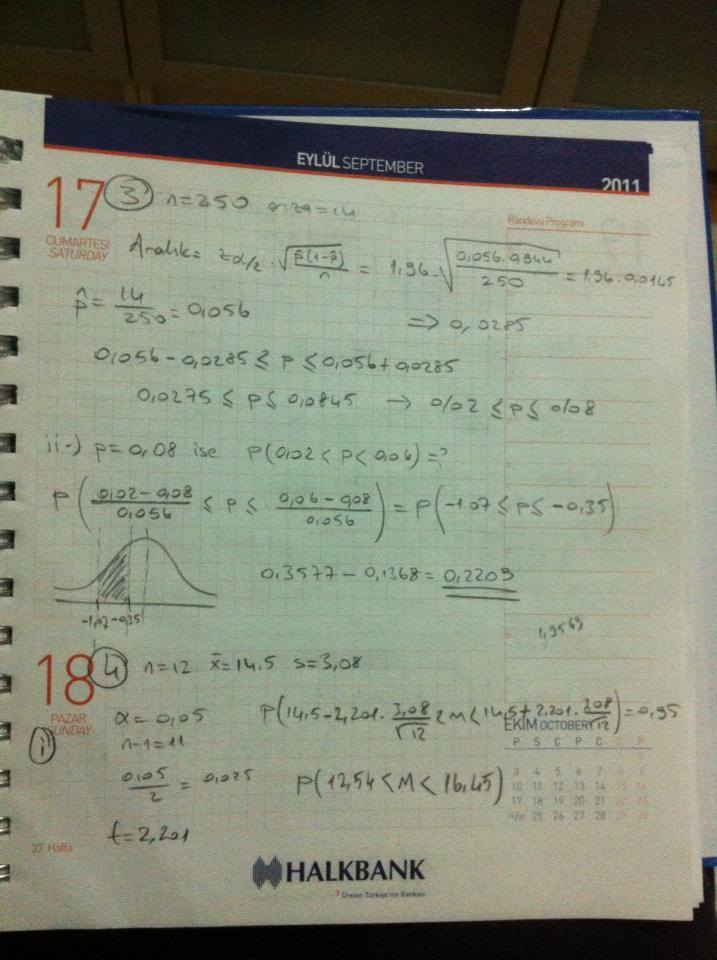 EYLÜL SEPTEMBER
2011
17 CUMARTESİ SATURDAY
Randevu Programı
3 n=250 arıza=14
Aralık= zα/2 . √(p̂(1-p̂)/n) = 1,96 . √(0,056.0,944/250) = 1,96.0,0145
p̂ = 14/250 = 0,056
=> 0,0285
0,056-0,0285 ≤ p ≤ 0,056+0,0285
0,0275 ≤ p ≤ 0,0845 → 0/02 ≤ p ≤ 0/08
ii-) p=0,08 ise P(0,02 < p < 0,06) = ?
P((0,02-0,08)/0,056 ≤ p ≤ (0,06-0,08)/0,056) = P(-1.07 ≤ p ≤ -0,35)
0,3577 - 0,1368 = 0,2209
-1,07 -0,35
18 PAZAR SUNDAY
4 n=12 x̄=14.5 s=3,08
i α = 0,05 P(14,5-2,201. 3,08/√12 < M < 14,5+2,201. 3,08/√12) = 0,95
n-1=11
0,05/2 = 0,025 P(12,54 < M < 16,45)
t=2,201
EKİM OCTOBER
P S Ç P C C P
3 4 5 6 7 8 9
10 11 12 13 14 15 16
17 18 19 20 21 22 23
24/31 25 26 27 28 29 30
37. Hafta
HALKBANK
Üreten Türkiye'nin Bankası